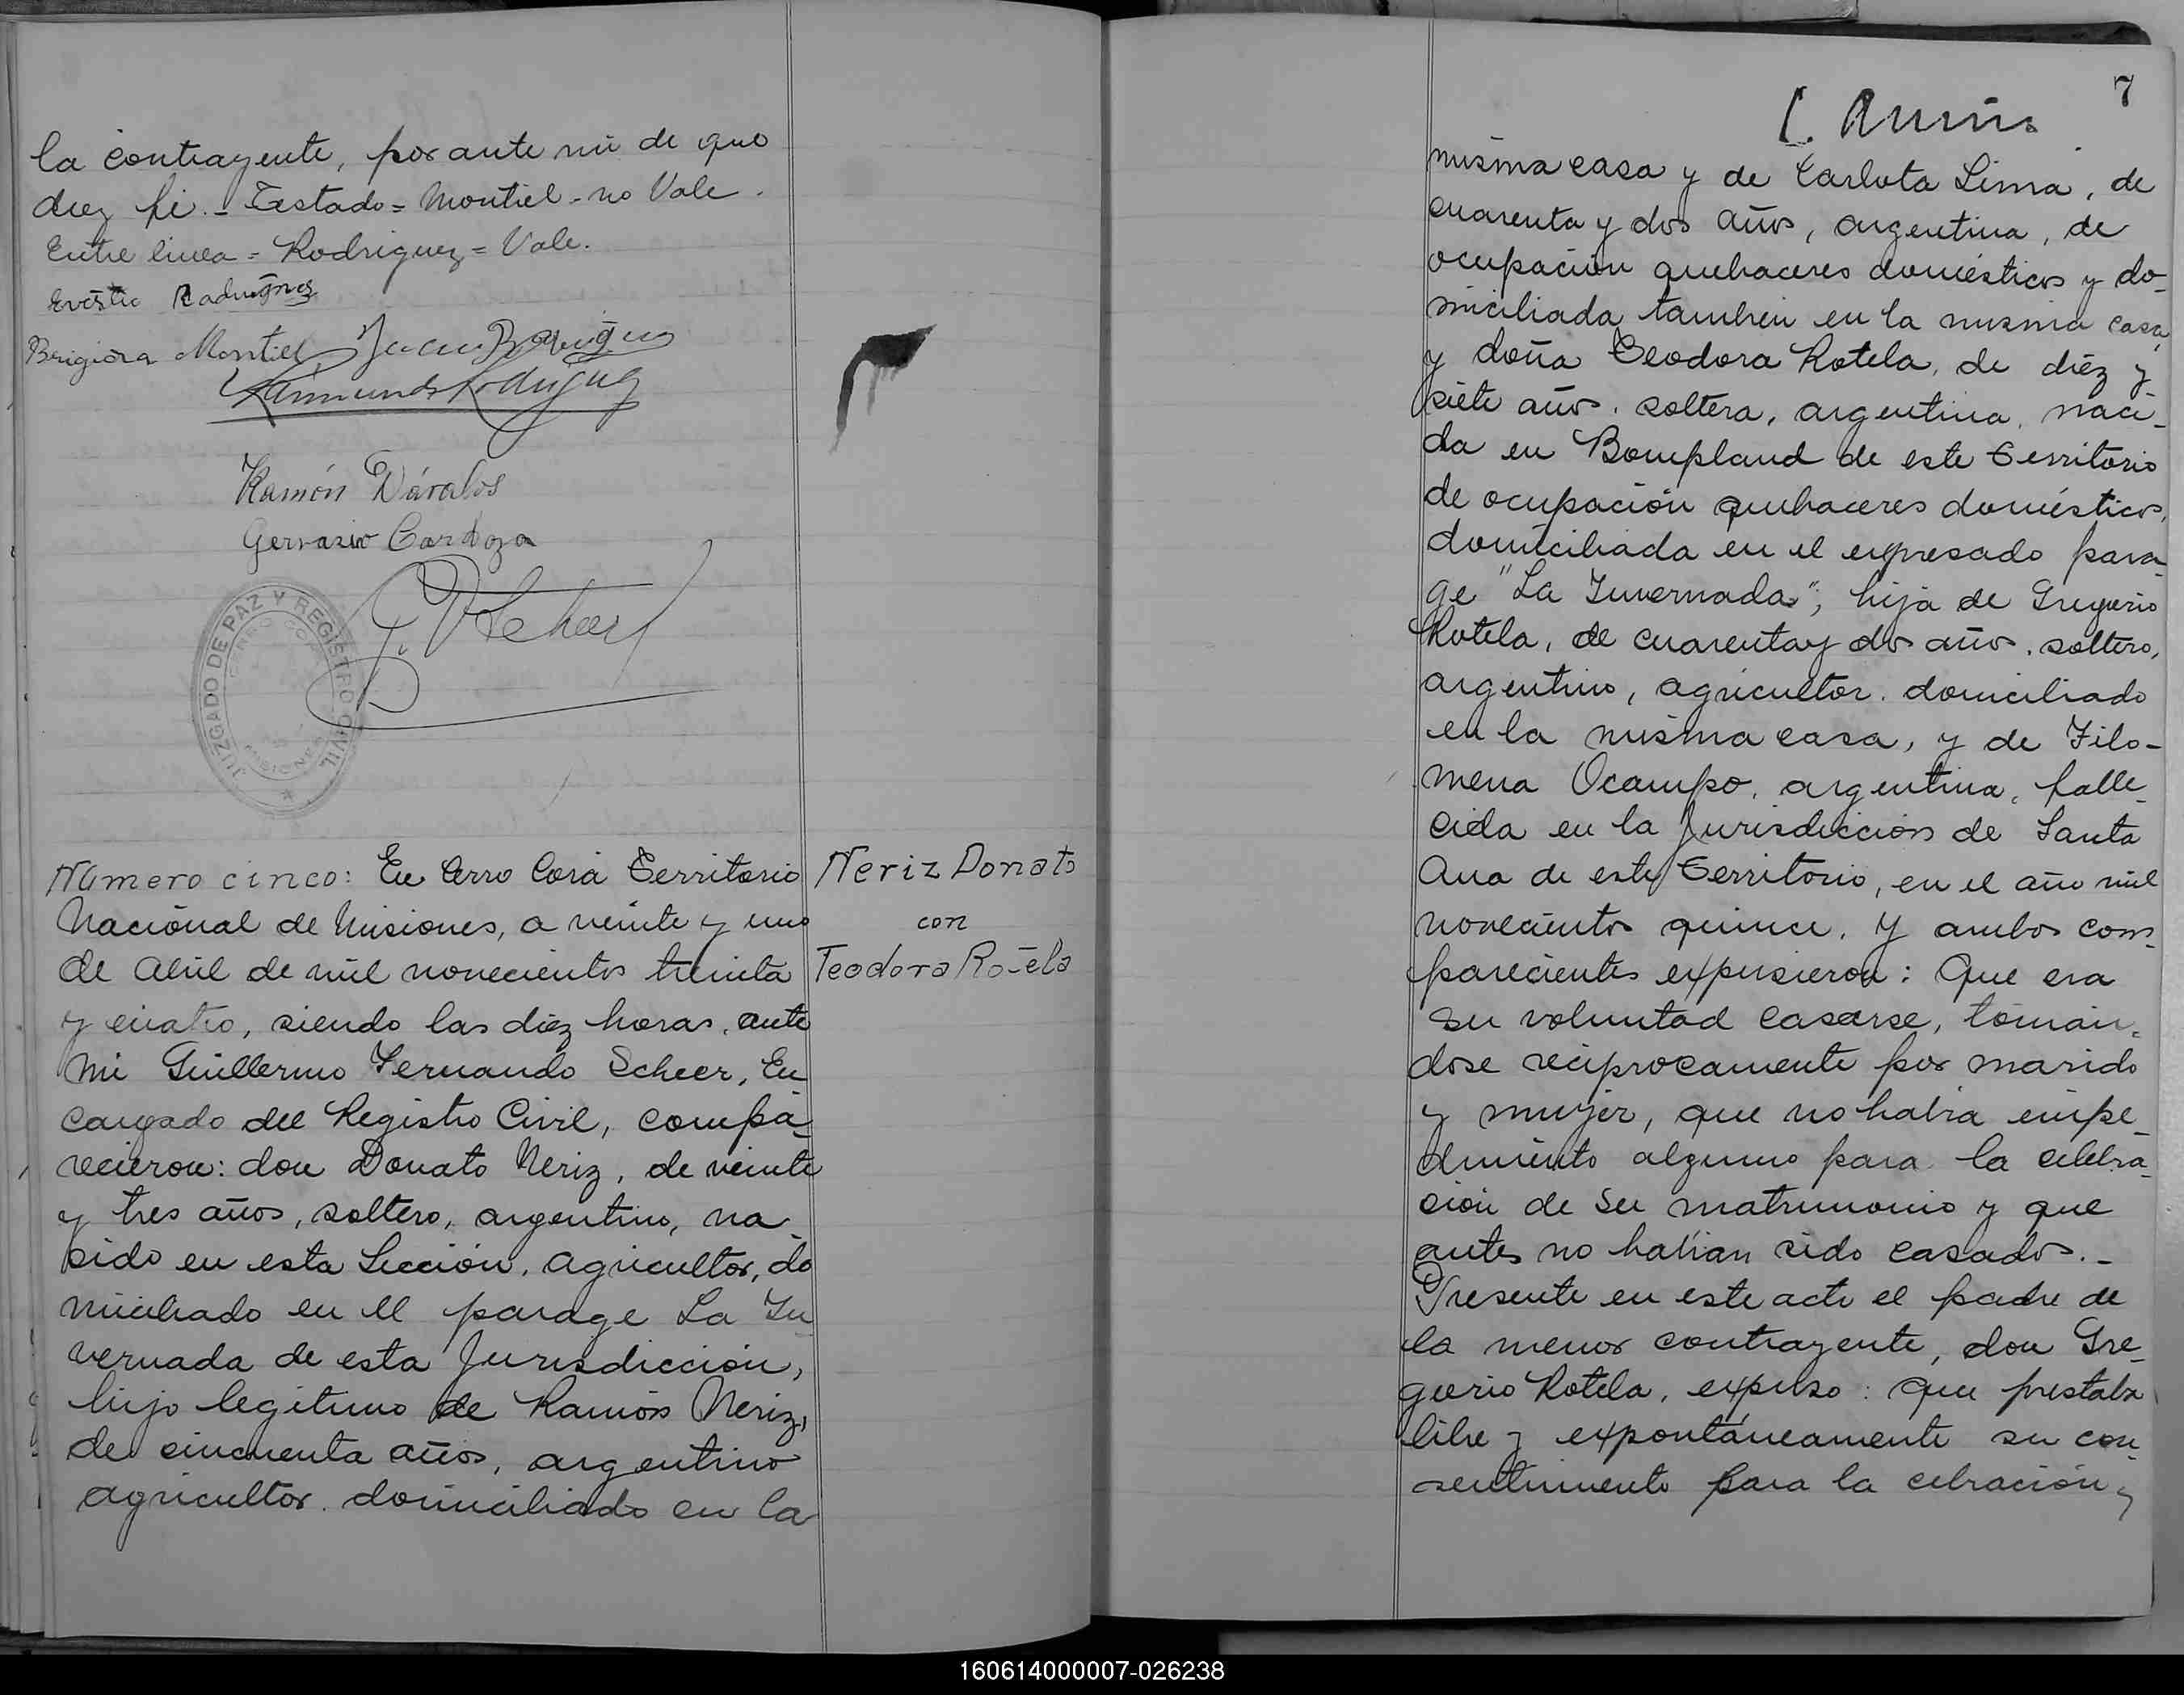 la contrayente, por ante mi de que
doy fé. - Testado = Montiel - no Vale.
Entre linea = Rodriguez = Vale.
Montiel
Raimundo Rodriguez
Ramón Dávalos
Gervasio Cardozo
JUZGADO DE PAZ Y REGISTRO CIVIL
CERRO CORÁ
MISIONES
Número cinco: En Cerro Corá Territorio
Nacional de Misiones, a veinte y uno
de Abril de mil novecientos treinta
y cuatro, siendo las diez horas, ante
mi Guillermo Fernando Scheer, En
cargado del Registro Civil, compa-
recieron: don Donato Neriz, de veinte
y tres años, soltero, argentino, na-
cido en esta Sección, agricultor, do
miciliado en el parage La In
vernada de esta Jurisdicción,
hijo legítimo de Ramón Neriz,
de cincuenta años, argentino
agricultor. domiciliado en la
Neriz Donato
con
Teodora Rotela
7
misma casa y de Carlota Lima, de
cuarenta y dos años, argentina, de
ocupación quehaceres domésticos y do-
miciliada tambien en la misma casa
y doña Teodora Rotela, de diéz y
siete años. soltera, argentina, naci-
da en Bompland de este Territorio
de ocupación quehaceres domésticos,
domiciliada en el expresado para-
ge "La Invernada", hija de Gregorio
Rotela, de cuarenta y dos años. soltero,
argentino, agricultor. domiciliado
en la misma casa, y de Filo-
mena Ocampo, argentina, falle-
cida en la Jurisdicción de Santa
Ana de este Territorio, en el año mil
novecientos quince. Y ambos com-
parecientes expusieron: Que era
su voluntad casarse, tomán-
dose reciprocamente por marido
y mujer, que no habia impe-
dimento alguno para la celebra-
ción de su matrimonio y que
antes no habían sido casados. -
Presente en este acto el padre de
la menor contrayente, don Gre-
gorio Rotela, expuso: que prestaba
libre y expontáneamente su con-
sentimiento para la celración y
160614000007-026238